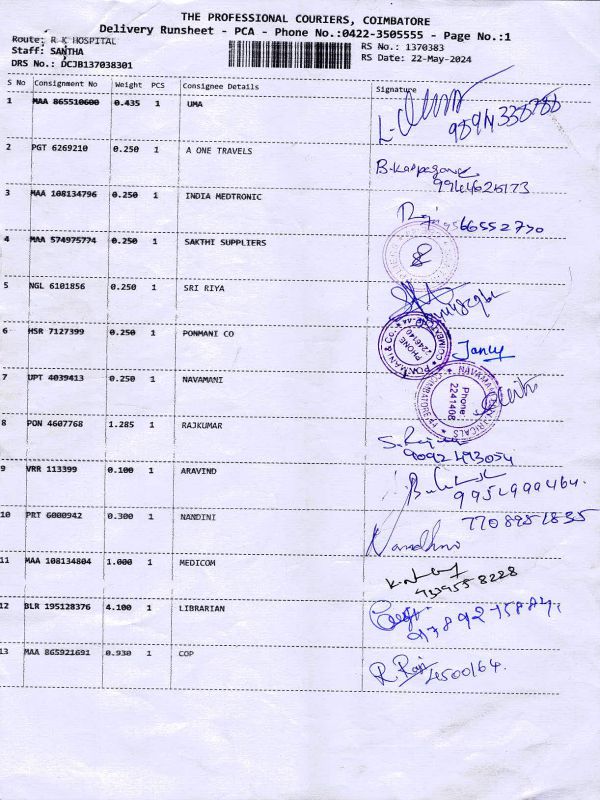 THE PROFESSIONAL COURIERS, COIMBATORE
Delivery Runsheet - PCA - Phone No.:0422-3505555 - Page No.:1
Route: R K HOSPITAL
Staff: SANTHA
DRS No.: DCJB137038301
RS No.: 1370383
RS Date: 22-May-2024
S No Consignment No Weight PCS Consignee Details Signature
1 MAA 865510600 0.435 1 UMA
9894338788
2 PGT 6269210 0.250 1 A ONE TRAVELS
B.Karpagam
9944626173
3 MAA 108134796 0.250 1 INDIA MEDTRONIC
4 MAA 574975774 0.250 1 SAKTHI SUPPLIERS
5 NGL 6101856 0.250 1 SRI RIYA
6 HSR 7127399 0.250 1 PONMANI CO
PONMANI & CO.
PHONE
2246140
Jancy
7 UPT 4039413 0.250 1 NAVAMANI
Phone:
2241408
8 PON 4607768 1.285 1 RAJKUMAR
9092493054
9 VRR 113399 0.100 1 ARAVIND
9952999464.
10 PRT 6000942 0.300 1 NANDINI
7708951835
Nandhini
11 MAA 108134804 1.000 1 MEDICOM
12 BLR 195128376 4.100 1 LIBRARIAN
13 MAA 865921691 0.930 1 COP
R. Raji
4500164.